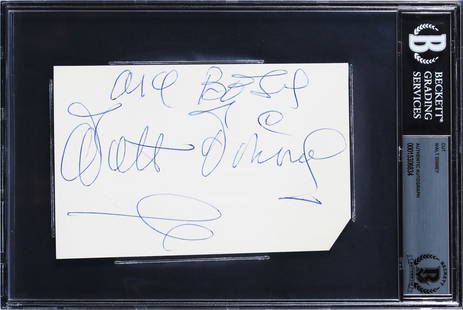 all Best
Walt Disney
BECKETT
GRADING
SERVICES
CUT
WALT DISNEY
AUTHENTIC AUTOGRAPH
BECKETT